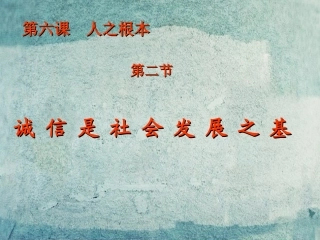 第六课 人之根本
第二节
诚信是社会发展之基